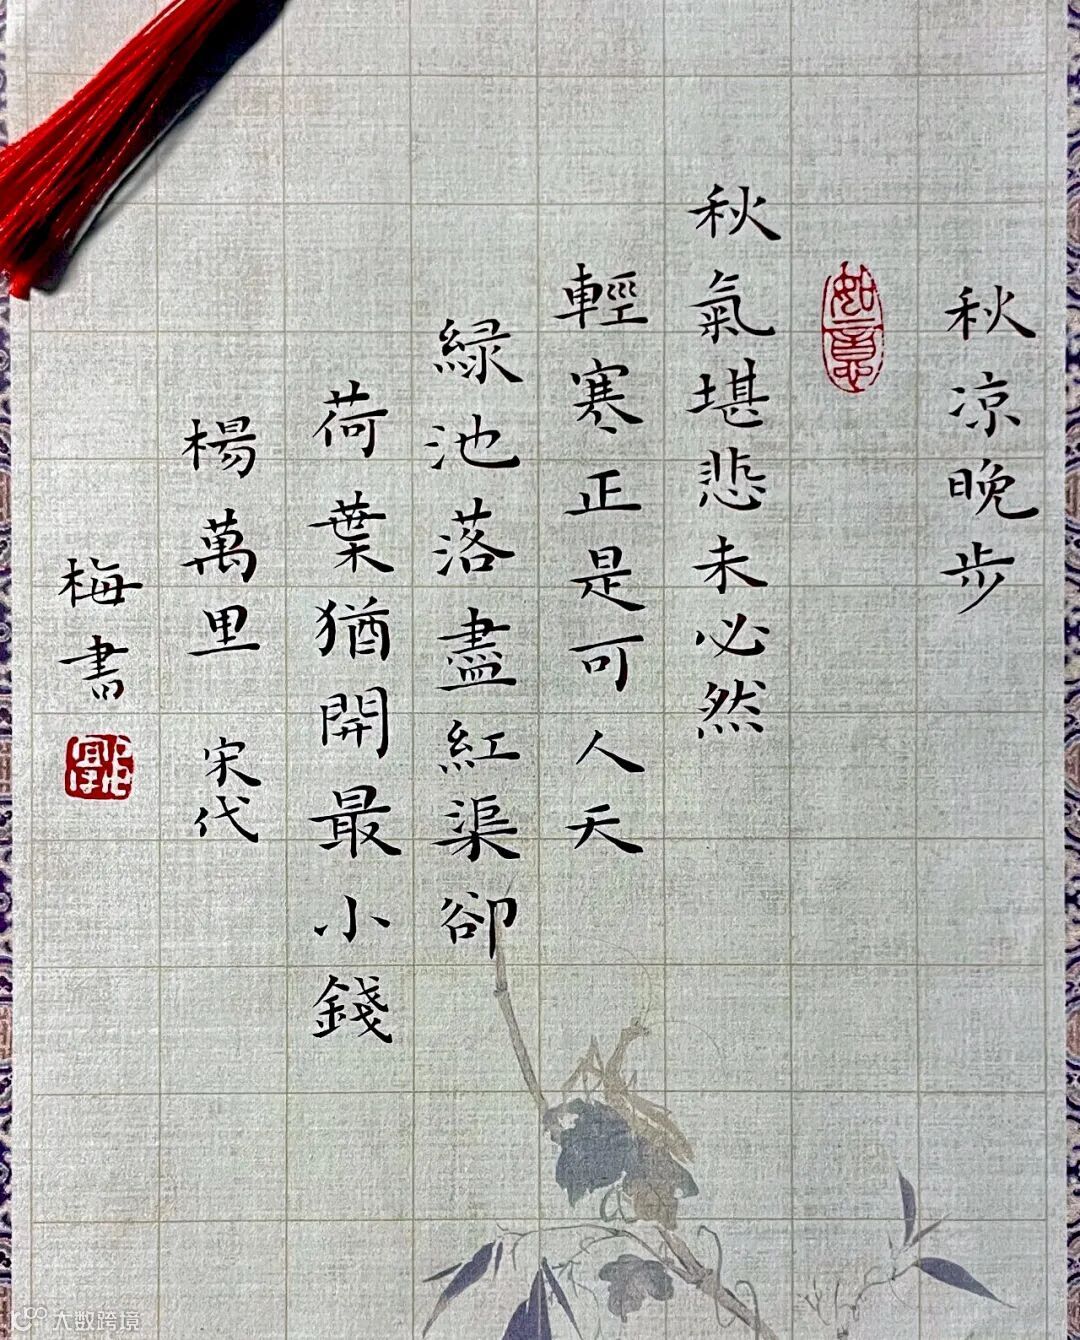 秋凉晚步
如意
秋氣堪悲未必然
輕寒正是可人天
緑池落盡紅渠卻
荷葉猶開最小錢
楊萬里 宋代
梅書
大数跨境